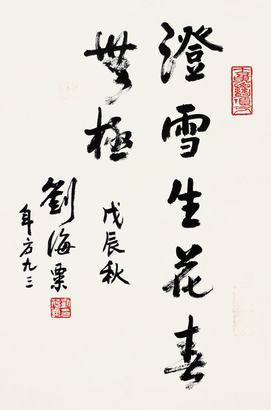 澄雪生花春
無極
戊辰秋
劉海粟
年方九三